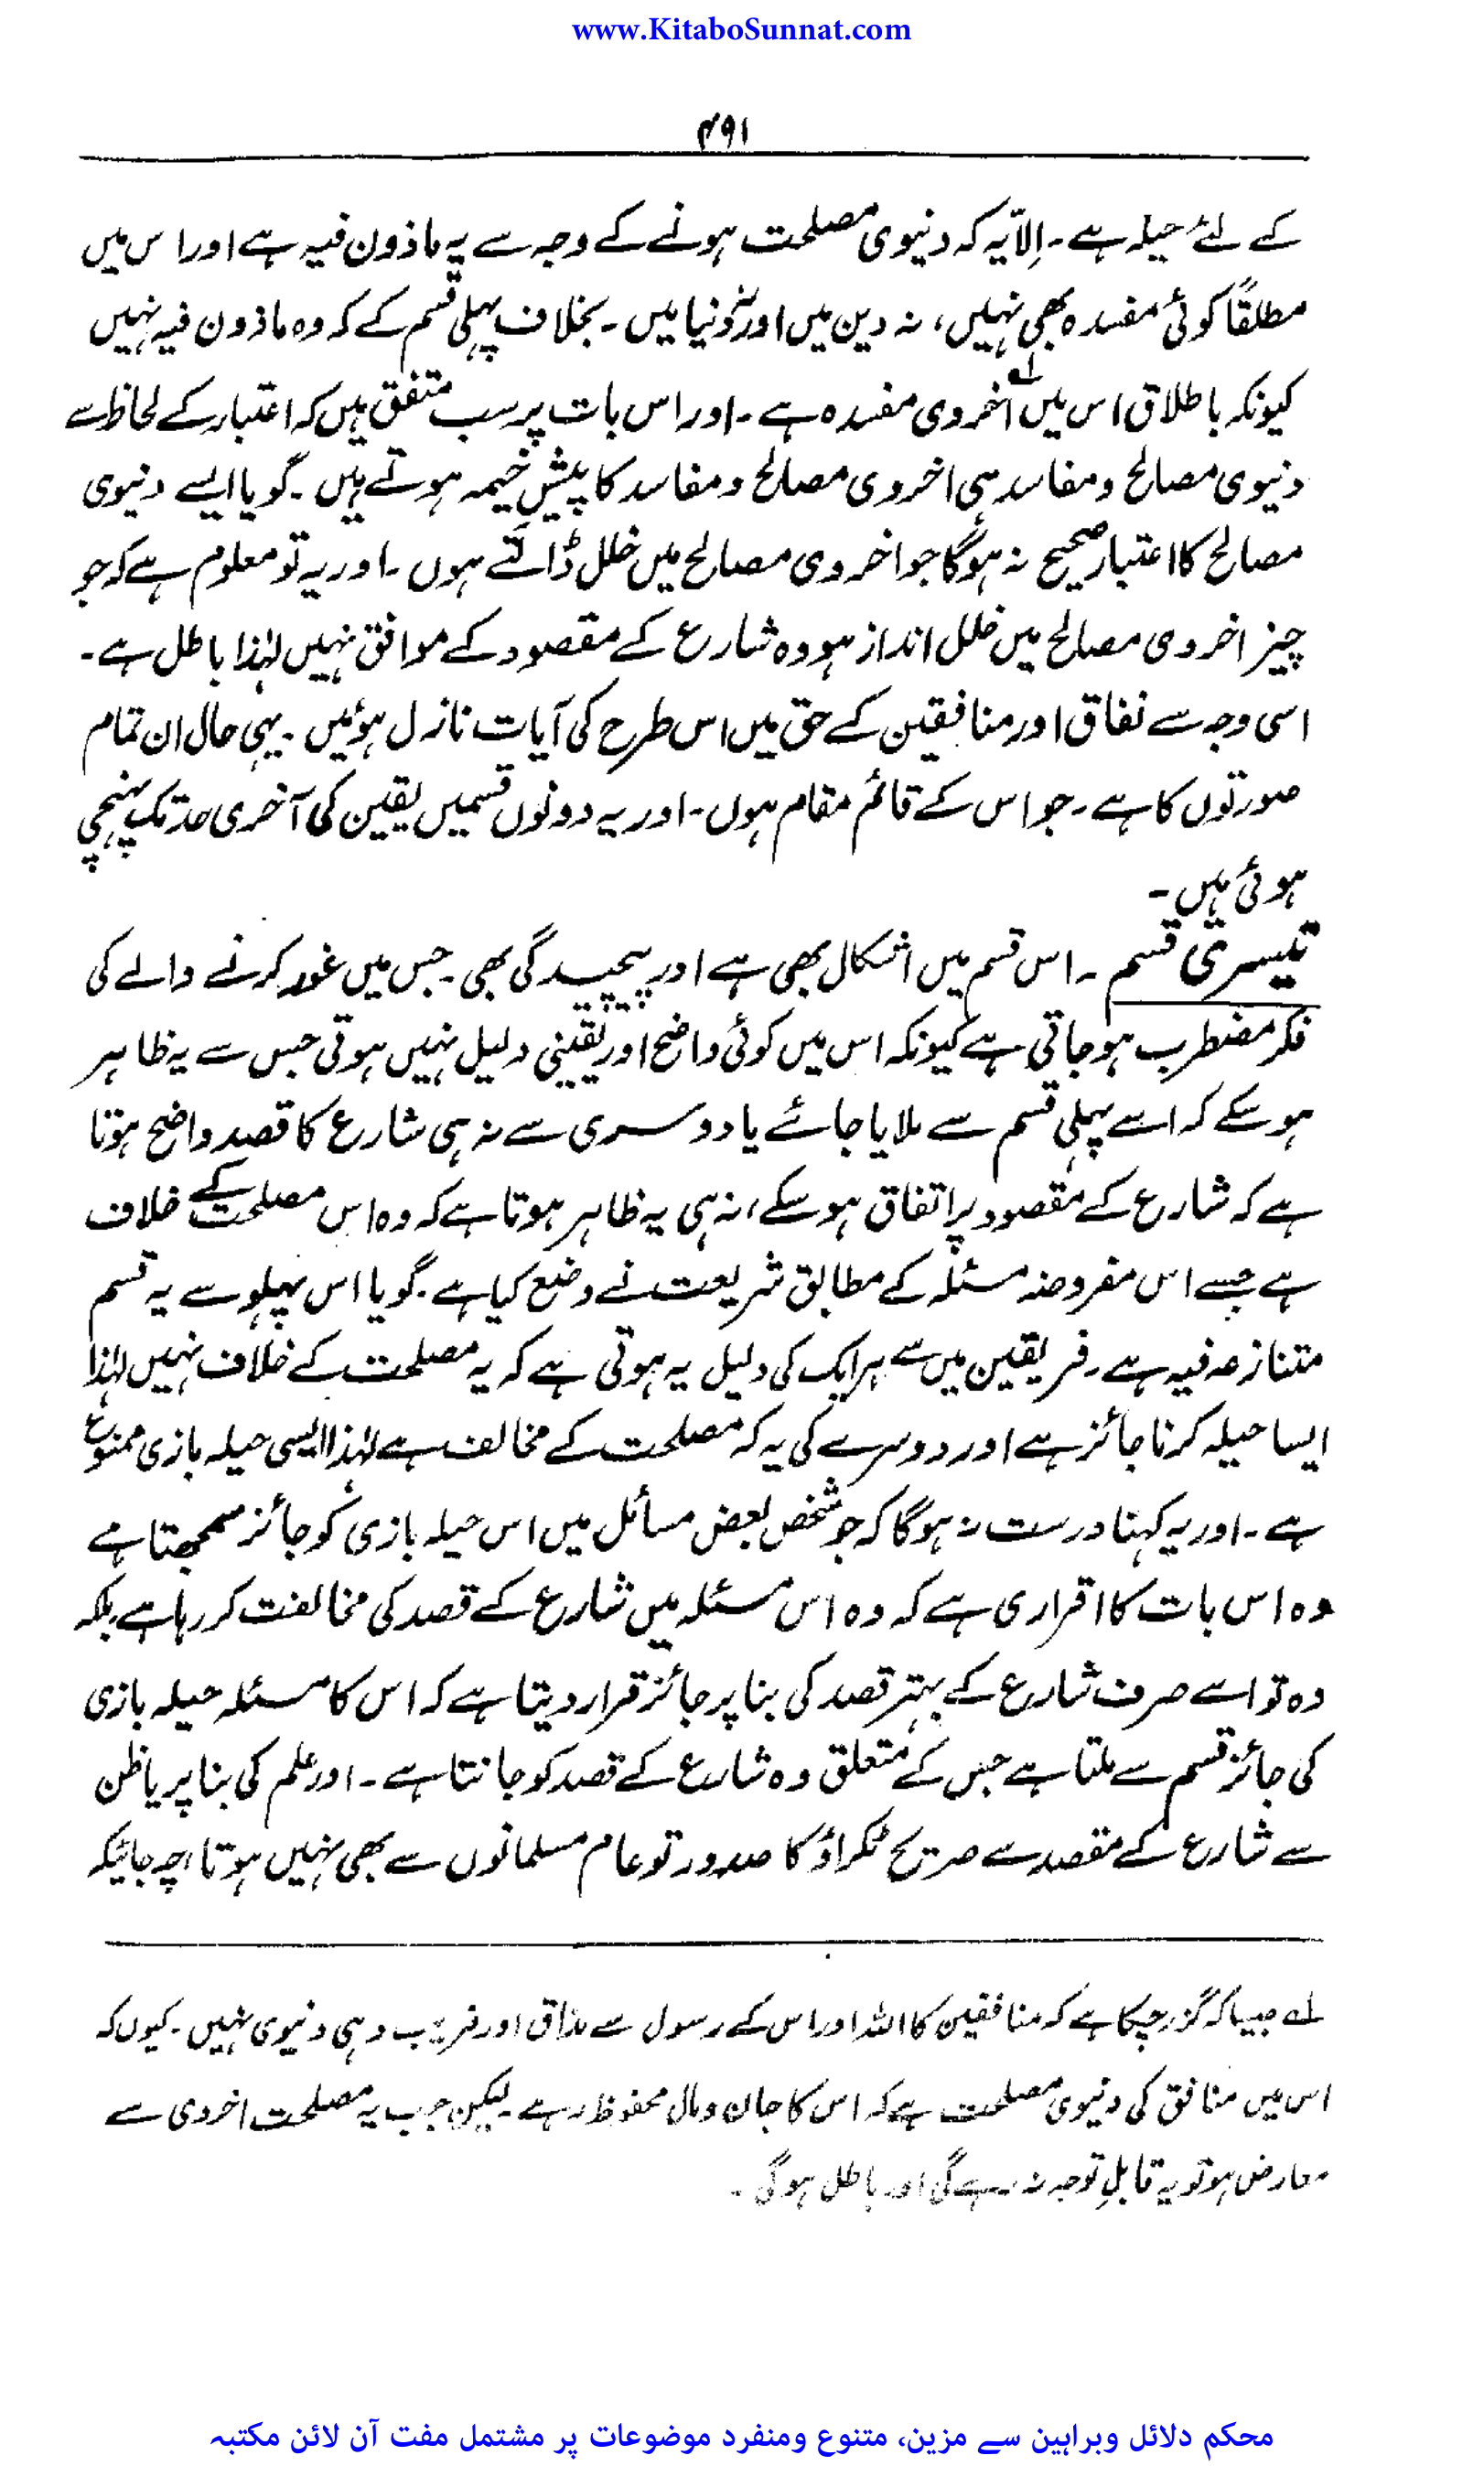 www.KitaboSunnat.com
۴۹۱
کے لئے حیلہ ہے۔ اِلاّ یہ کہ دنیوی مصلحت ہونے کے وجہ سے یہ ماذون فیہ ہے اور اس میں
مطلقًا کوئی مفسدہ بھی نہیں، نہ دین میں اور نہ دُنیا میں۔ بخلاف پہلی قسم کے کہ وہ ماذون فیہ نہیں
کیونکہ باطلاق اس میں اُخروی مفسدہ ہے۔ لے اور اس بات پر سب متفق ہیں کہ اعتبار کے لحاظ سے
دنیوی مصالح و مفاسد ہی اخروی مصالح و مفاسد کا پیش خیمہ ہوتے ہیں۔ گویا ایسے دنیوی
مصالح کا اعتبار صحیح نہ ہوگا جو اخروی مصالح میں خلل ڈالتے ہوں۔ اور یہ تو معلوم ہے کہ جو
چیز اخروی مصالح میں خلل انداز ہو وہ شارع کے مقصود کے موافق نہیں لہٰذا باطل ہے۔
اسی وجہ سے نفاق اور منافقین کے حق میں اس طرح کی آیات نازل ہوئیں۔ یہی حال ان تمام
صورتوں کا ہے۔ جو اس کے قائم مقام ہوں۔ اور یہ دونوں قسمیں یقین کی آخری حد تک پہنچی
ہوئی ہیں۔
تیسری قسم۔ اس قسم میں اشکال بھی ہے اور پیچیدگی بھی۔ جس میں غور کرنے والے کی
فکر مضطرب ہو جاتی ہے کیونکہ اس میں کوئی واضح اور یقینی دلیل نہیں ہوتی جس سے یہ ظاہر
ہو سکے کہ اسے پہلی قسم سے ملایا جائے یا دوسری سے نہ ہی شارع کا قصد واضح ہوتا
ہے کہ شارع کے مقصود پر اتفاق ہو سکے، نہ ہی یہ ظاہر ہوتا ہے کہ وہ اس مصلحت کے خلاف
ہے جسے اس مفروضہ مسئلہ کے مطابق شریعت نے وضع کیا ہے۔ گویا اس پہلو سے یہ قسم
متنازعہ فیہ ہے۔ فریقین میں سے ہر ایک کی دلیل یہ ہوتی ہے کہ یہ مصلحت کے خلاف نہیں لہٰذا
ایسا حیلہ کرنا جائز ہے اور دوسرے کی یہ کہ مصلحت کے مخالف ہے لہٰذا ایسی حیلہ بازی ممنوع
ہے۔ اور یہ کہنا درست نہ ہوگا کہ جو شخص بعض مسائل میں اس حیلہ بازی کو جائز سمجھتا ہے
وہ اس بات کا اقراری ہے کہ وہ اس مسئلہ میں شارع کے قصد کی مخالفت کر رہا ہے بلکہ
وہ تو اسے صرف شارع کے بہتر قصد کی بنا پر جائز قرار دیتا ہے کہ اس کا مسئلہ حیلہ بازی
کی جائز قسم سے ملتا ہے جس کے متعلق وہ شارع کے قصد کو جانتا ہے۔ اور علم کی بنا پر یا ظن
سے شارع کے مقصد سے صریح ٹکراؤ کا صدور تو عام مسلمانوں سے بھی نہیں ہوتا، چہ جائیکہ
لے جیسا کہ گزر چکا ہے کہ منافقین کا اللہ اور اس کے رسول سے مذاق اور فریب دہی دنیوی نہیں۔ کیوں کہ
اس میں منافق کی دنیوی مصلحت ہے کہ اس کا جان و مال محفوظ رہے۔ لیکن جب یہ مصلحت اخروی سے
معارض ہو تو یہ قابلِ توجہ نہ رہے گی اور باطل ہوگی۔
محکم دلائل وبراہین سے مزین، متنوع ومنفرد موضوعات پر مشتمل مفت آن لائن مکتبہ